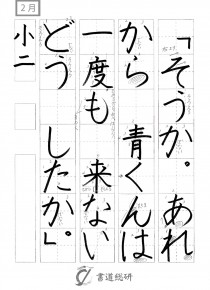 2月
「そうか。あれ
から 青くんは
一度も 来ない
どう したか。」
小二
書道総研